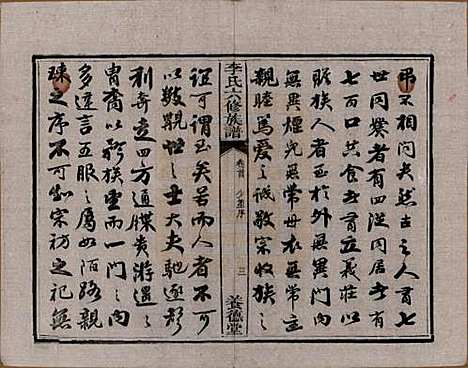 弔不相問夫然古之人有七
世同爨者有四從同居者有
七百口共食者有立義莊以
賑族人者至於外無異門
無異煙兒無常母衣無常主
親睦爲愛之誠敬宗收族之
李氏六修族譜
卷首
序
三
善德堂
誼可謂至矣若而人者不可
以數覯世之士大夫馳逐聲
利奔走四方通牒貴游遐之
冑裔以矜族而一門之內
多違言五服之屬如陌路親
疎之序不可知宗祊之祀無